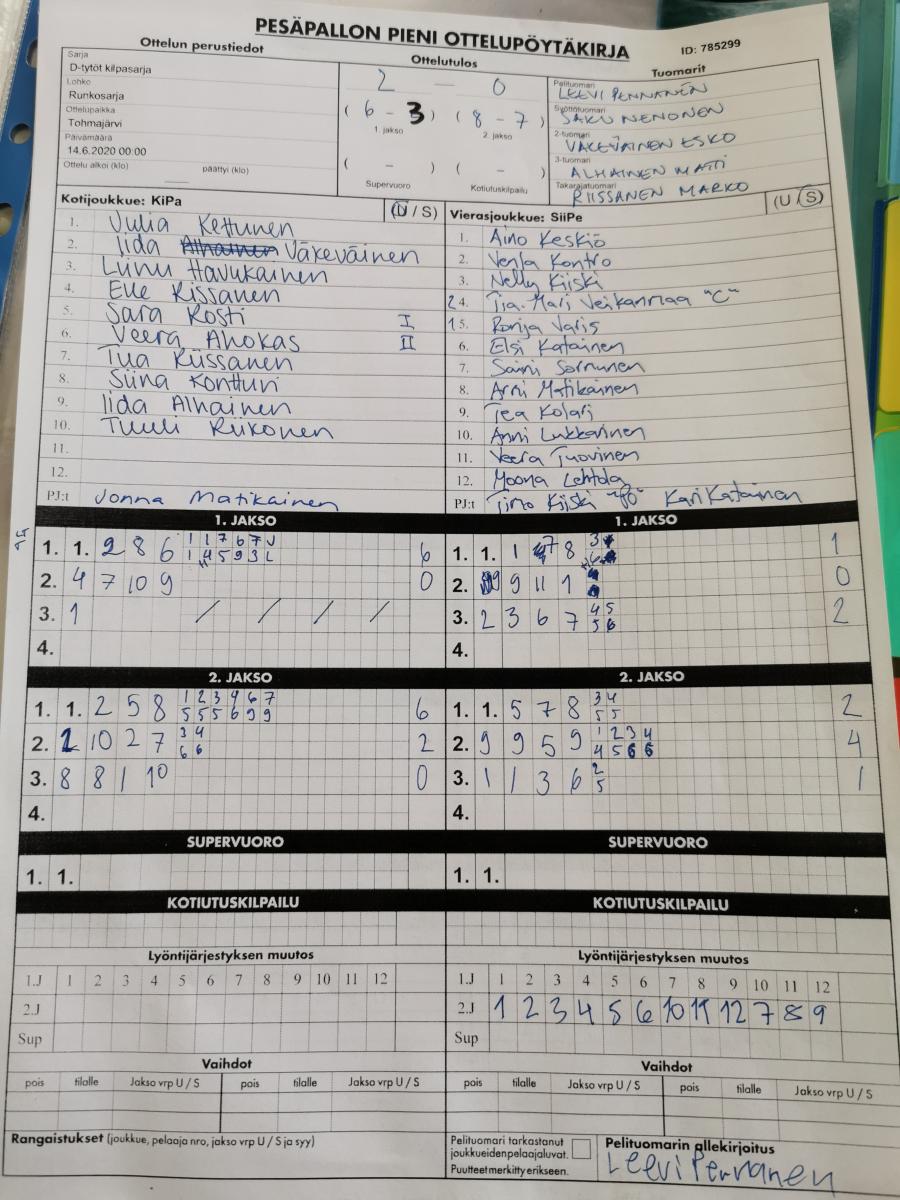 PESÄPALLON PIENI OTTELUPÖYTÄKIRJA
ID: 785299
Ottelun perustiedot
Sarja
D-tytöt kilpasarja
Lohko
Runkosarja
Ottelupaikka
Tohmajärvi
Päivämäärä
14.6.2020 00:00
Ottelu alkoi (klo) päättyi (klo)
Ottelutulos
2 — 0
( 6 - 3 ) ( 8 - 7 )
1. jakso 2. jakso
( - ) ( - )
Supervuoro Kotiutuskilpailu
Tuomarit
Pelituomari
LEEVI PENNANEN
Syöttötuomari
SAKU NENONEN
2-tuomari
VÄKEVÄINEN ESKO
3-tuomari
ALHAINEN MATTI
Takarajatuomari
RIISSANEN MARKO
Kotijoukkue: KiPa (U / S)
1. Julia Kettunen
2. Iida Alhainen Väkeväinen
3. Linnu Havukainen
4. Elle Rissanen
5. Sara Rosti I
6. Veera Ahokas II
7. Tua Riissanen
8. Siina Kontturi
9. Iida Alhainen
10. Tuuli Riikonen
11.
12.
PJ:t Jonna Matikainen
Vierasjoukkue: SiiPe (U / S)
1. Aino Keskiö
2. Venla Kontro
3. Nelly Kiiski
24. Tia-Mari Veikanmaa "C"
15. Ronja Varis
6. Elsi Katainen
7. Saini Sormunen
8. Anni Matikainen
9. Tea Kolari
10. Anni Lukkarinen
11. Veera Tuovinen
12. Moona Lehtola
PJ:t Timo Kiiski "PO" Kari Katainen
1. JAKSO
1. 1. 2 8 6 1 1 7 6 7 V 6
1 4 5 9 3 L
2. 4 7 10 9 0
3. 1 / / / /
4.
1. JAKSO
1. 1. 1 7 8 3 1
2. 9 11 1 0
3. 2 3 6 7 4 5 2
5 6
4.
2. JAKSO
1. 1. 2 5 8 1 2 3 4 6 7 6
5 5 5 6 9 9
2. 1 10 2 7 3 4 2
6 6
3. 8 8 1 10 0
4.
2. JAKSO
1. 1. 5 7 8 3 4 2
5 5
2. 9 9 5 9 1 2 3 4 4
4 5 6 6
3. 1 1 3 6 2 1
5
4.
SUPERVUORO
1. 1.
SUPERVUORO
1. 1.
KOTIUTUSKILPAILU
KOTIUTUSKILPAILU
Lyöntijärjestyksen muutos
1.J 1 2 3 4 5 6 7 8 9 10 11 12
2.J
Sup
Lyöntijärjestyksen muutos
1.J 1 2 3 4 5 6 7 8 9 10 11 12
2.J 1 2 3 4 5 6 10 11 12 7 8 9
Sup
Vaihdot
pois tilalle Jakso vrp U / S pois tilalle Jakso vrp U / S
Vaihdot
pois tilalle Jakso vrp U / S pois tilalle Jakso vrp U / S
Rangaistukset (joukkue, pelaaja nro, jakso vrp U / S ja syy)
Pelituomari tarkastanut
joukkueidenpelaajaluvat.
Puutteet merkitty erikseen.
Pelituomarin allekirjoitus
Leevi Pennanen